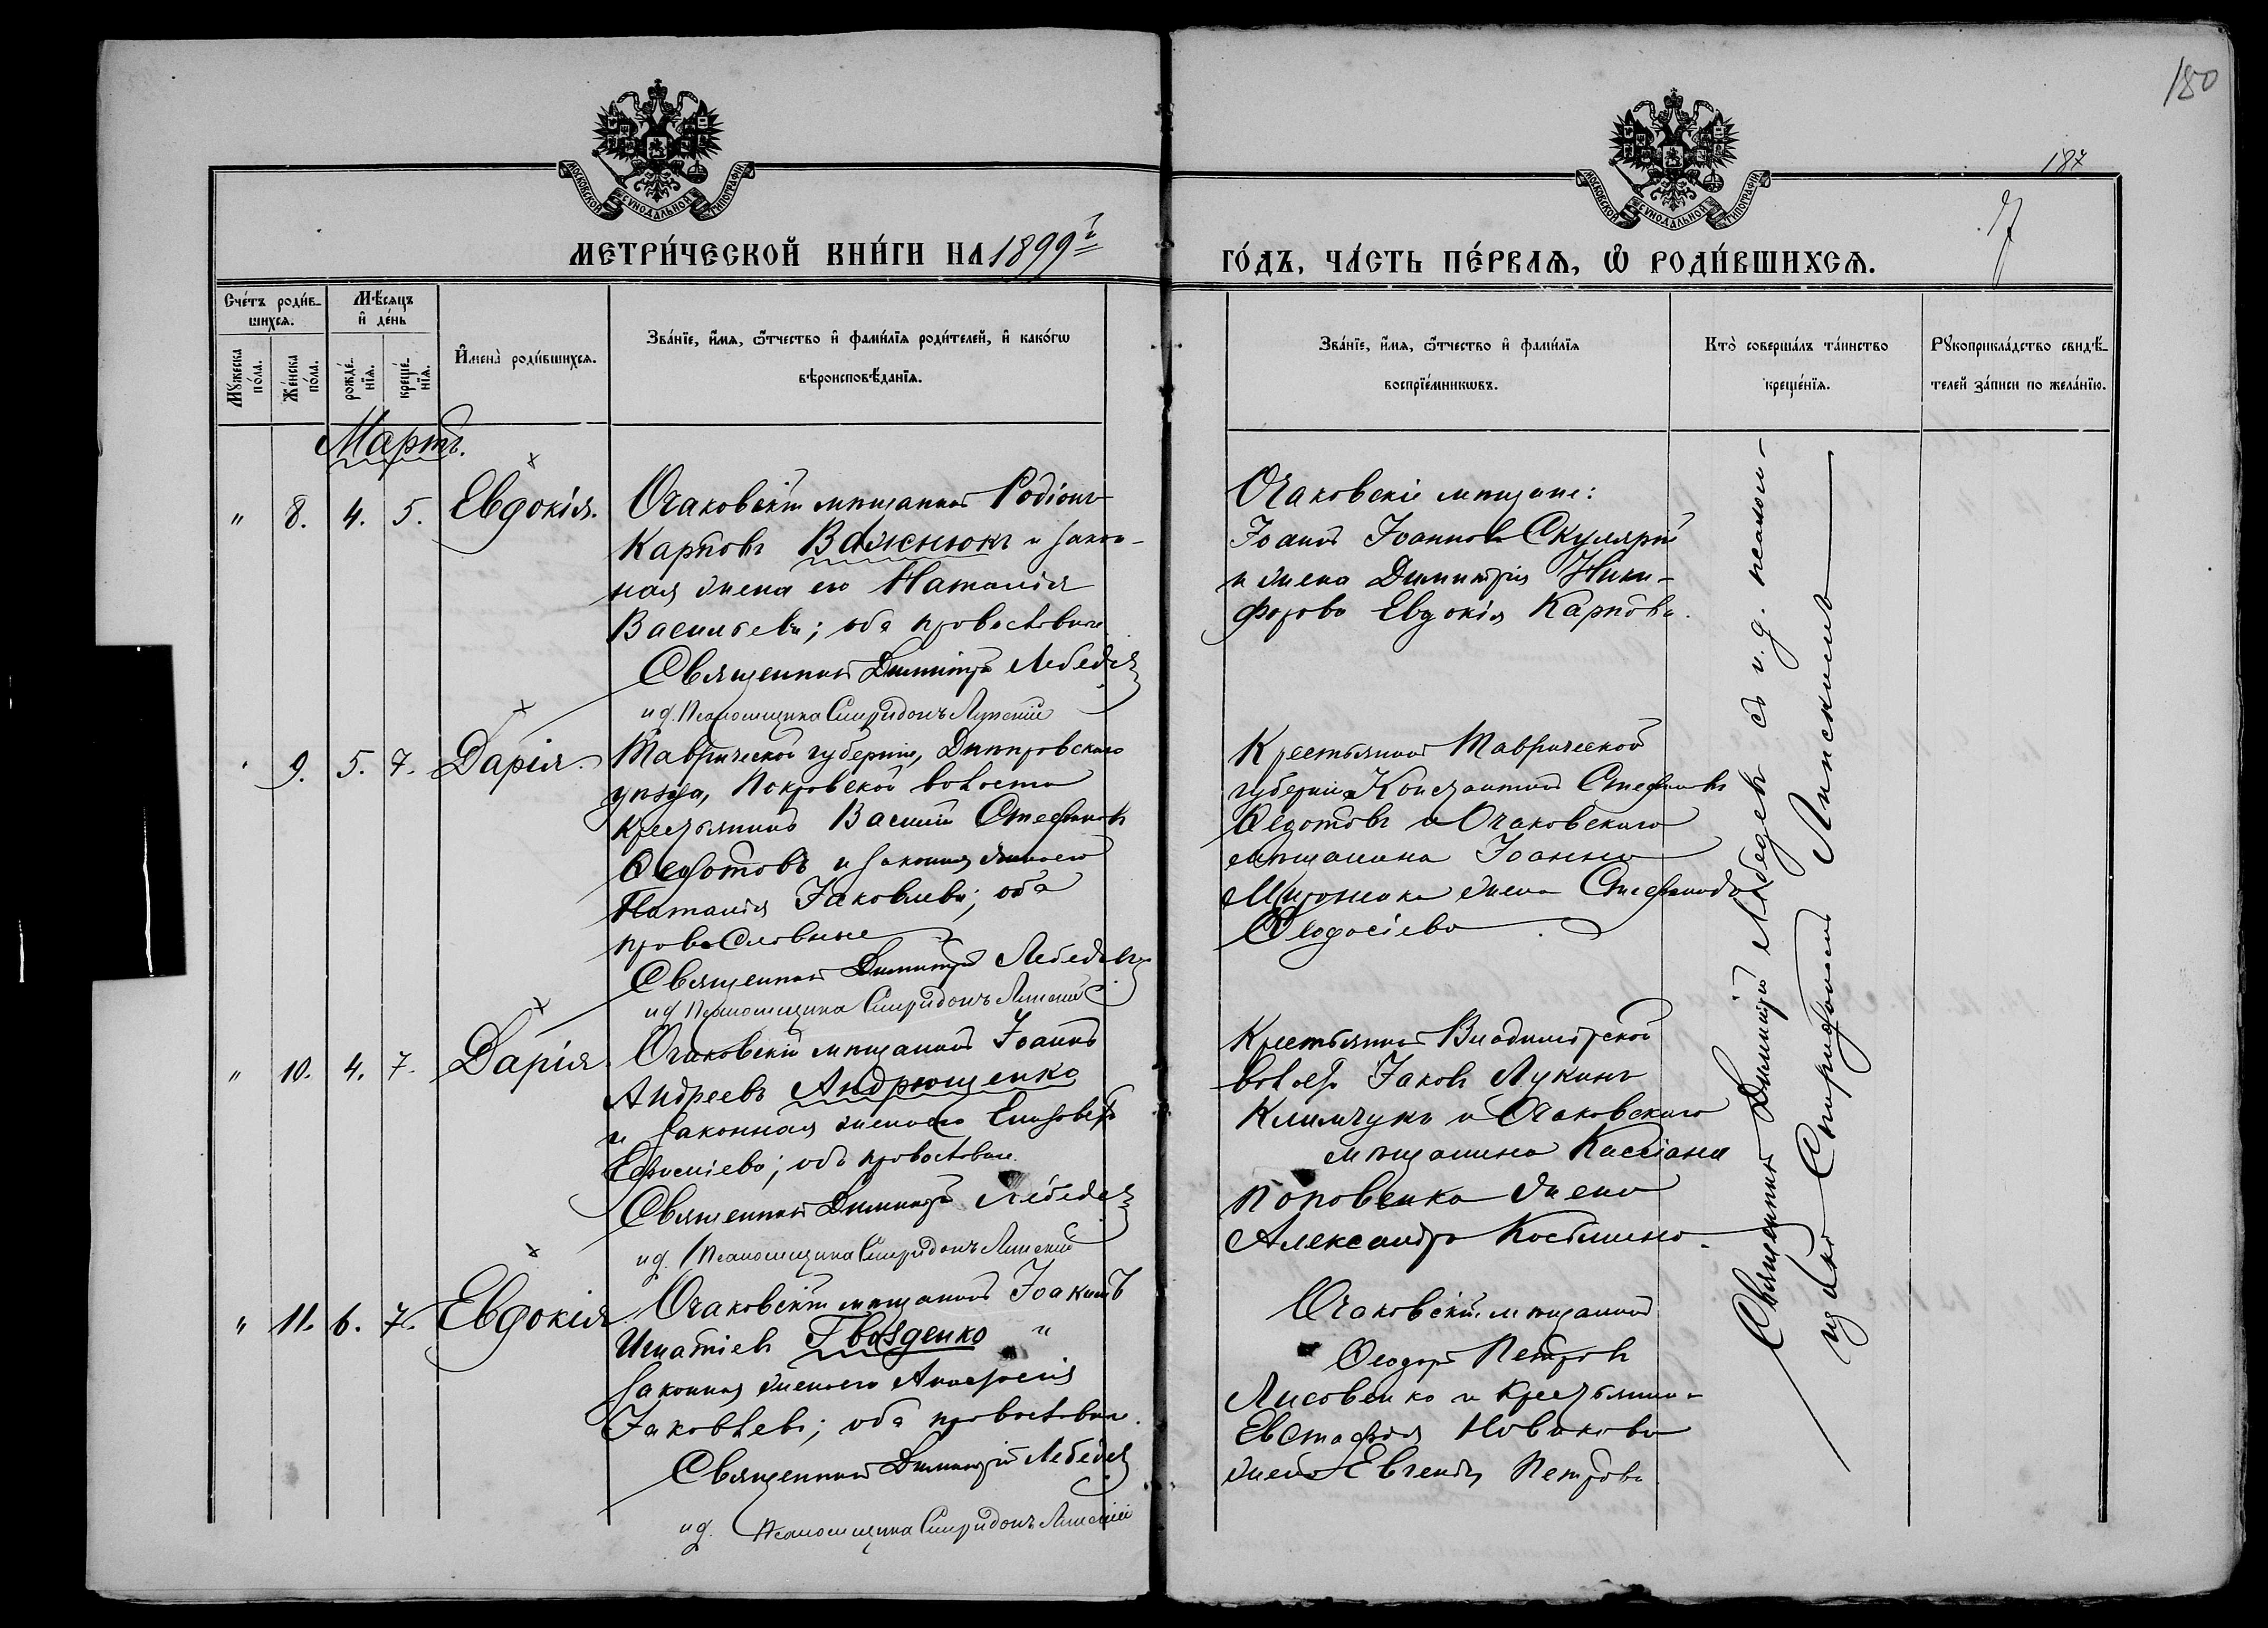 180
187
7
МОСКОВСКОЙ СѴНОДАЛЬНОЙ ТИПОГРАФІИ
МОСКОВСКОЙ СѴНОДАЛЬНОЙ ТИПОГРАФІИ
МЕТРИ́ЧЕСКОЙ КНИ́ГИ НА 1899й
ГО́ДЪ, ЧА́СТЬ ПЕ́РВАѦ, Ѡ РОДИ́ВШИХСѦ.
Сче́тъ роди́в-
шихсѧ.
Мѣ́сѧцъ
и҆ де́нь
Мꙋ́жеска
по́ла.
Же́нска
по́ла.
рожде́-
нїѧ.
креще́-
нїѧ.
И҆мена̀ роди́вшихсѧ.
Зва́нїе, и҆́мѧ, ѻ҆́тчество и҆ фами́лїѧ роди́телей, и҆ како́гѡ
вѣроисповѣ́данїѧ.
Зва́нїе, и҆́мѧ, ѻ҆́тчество и҆ фами́лїѧ
воспрїе́мникѡвъ.
Кто̀ соверша́лъ та́инство
креще́нїѧ.
Рꙋкоприкла́дство свидѣ́-
телей за́писи по жела́нїю.
Мартъ.
" 8. 4. 5. Евдокія.
Очаковскій мѣщанинъ Родіонъ
Карповъ Важнюкъ и закон-
ная жена его Наталія
Васильева; оба православные.
Священникъ Димитрій Лебедев
ид. Псаломщика Спиридонъ Липскій
Очаковскіе мѣщане:
Іоаннъ Іоанновъ Скулярій
и жена Димитрія Ники-
форова Евдокія Карпова.
9. 5. 7. Дарія.
Таврической губерніи, Днѣпровскаго
уѣзда, Покровской волости
крестьянинъ Василій Стефановъ
Ѳедотовъ и законная жена его
Наталія Іаковлева; оба
православные
Священникъ Димитрій Лебедевъ
ид Псаломщика Спиридонъ Липскій
Крестьянинъ Таврической
губерніи Константинъ Стефановъ
Ѳедотовъ и Очаковскаго
мѣщанина Іоанна
жена Стефанида
Ѳеодосіева.
" 10. 4. 7. Дарія.
Очаковскій мѣщанинъ Іоаннъ
Андреевъ Андрющенко
и законная жена его Елизавета
оба православные.
Священникъ Димитрій Лебедев
ид. Псаломщика Спиридонъ Липскій
Крестьянинъ Владимірской
волос. Іаковъ Лукинъ
Климчукъ и Очаковскаго
мѣщанина Кассіана
Поповенка жена
Александра Косьмина.
" 11. 6. 7. Евдокія.
Очаковскій мѣщанинъ Іоакимъ
Игнатіевъ Гвозденко и
законная жена его Анастасія
Іаковлева; оба православные.
Священникъ Димитрій Лебедев
ид. Псаломщика Спиридонъ Липскій
Очаковскій мѣщанинъ
Ѳеодоръ Петровъ
Лисовенко и крестьянина
Евстафія Новакова
жена Евгенія Петрова.
Священникъ Димитрій Лебедевъ съ и. д. псалом-
щика Спиридономъ Липскимъ